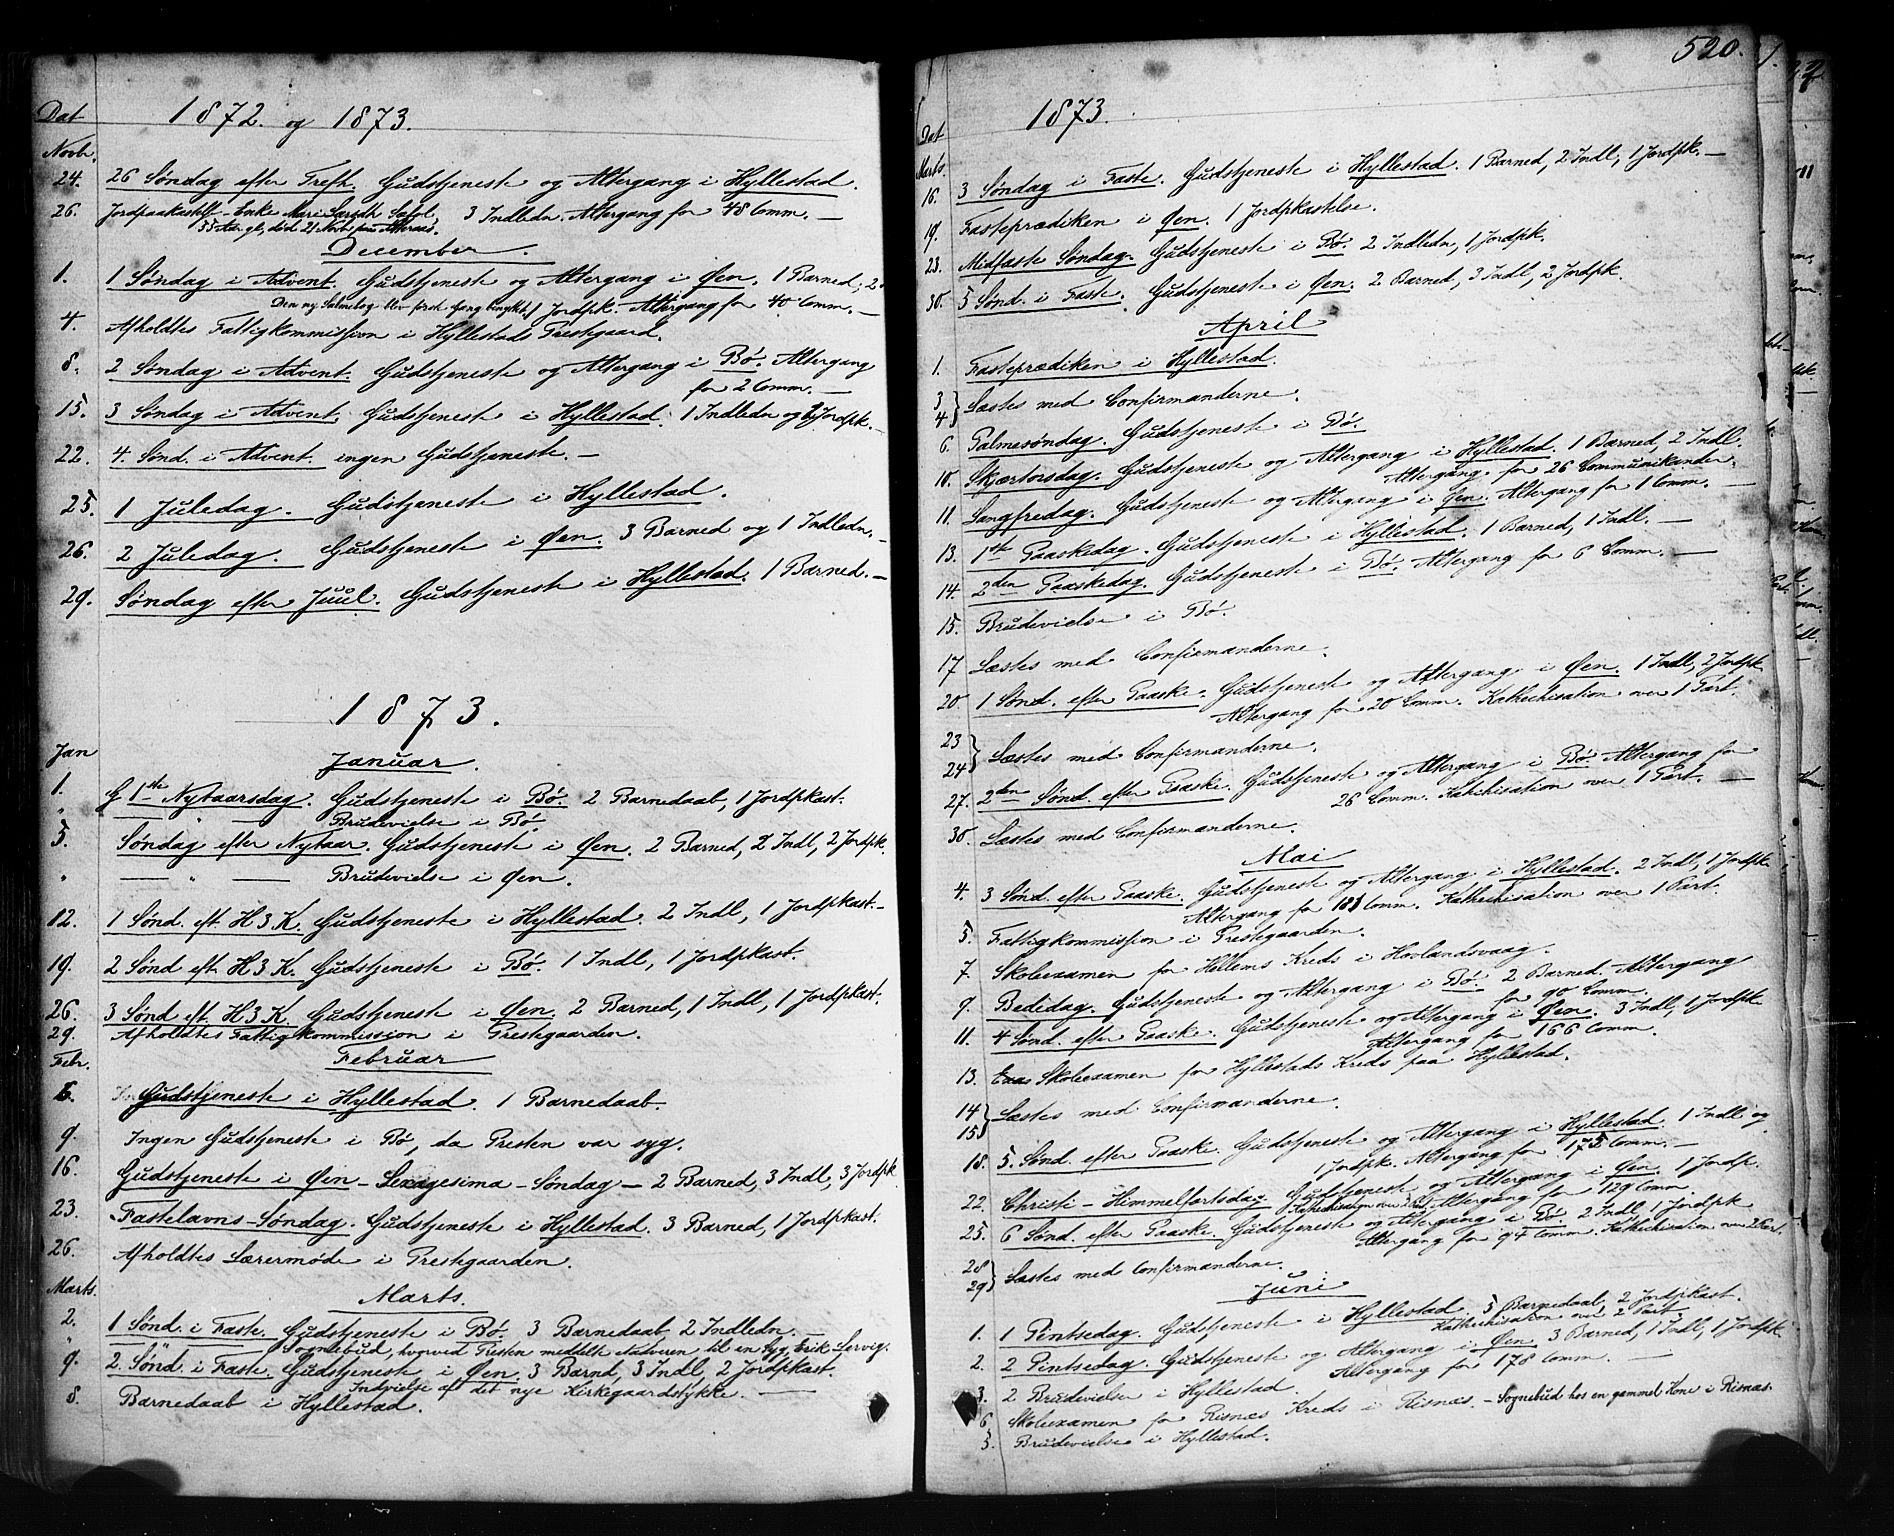 Dat 1872. og 1873.
Novbr.
24. 26 Søndag efter Trefh. Gudstjeneste og Altergang i Hyllestad.
26. Jordpaakastelse - Enke Mari 3 Indledn. Altergang for 48 Comm. —
55 Aar gl, død 21 Novb
December.
1. 1 Søndag i Advent. Gudstjeneste og Altergang i Øen. 1 Barned, 2
Den ny Salmebog blev første Gang benyttet Jordpk. Altergang for 40 Comm. —
4. Afholdtes Fattigkommission i Hyllestads Prestegaard.
8. 2 Søndag i Advent. Gudstjeneste og Altergang i Bø. Altergang
for 2 Comm. —
15. 3 Søndag i Advent. Gudstjeneste i Hyllestad. 1 Indledn og Jordpk. —
22. 4. Sønd. i Advent. ingen Gudstjeneste. —
25. 1 Juledag. Gudstjeneste i Hyllestad.
26. 2 Juledag. Gudstjeneste i Øen. 3 Barned og 1 Indledn. —
29. Søndag efter Juul. Gudstjeneste i Hyllestad. 1 Barned. —
1873.
Jan
Januar.
1. 1ste Nytaarsdag. Gudstjeneste i Bø. 2 Barnedaab, 1 Jordpkast.
" — " — Brudevielse i Bø.
5. Søndag efter Nytaar. Gudstjeneste i Øen. 2 Barned, 2 Indl, 2 Jordpk.
" — " — Brudevielse i Øen.
12. 1 Sønd. eft. H 3 K. Gudstjeneste i Hyllestad. 2 Indl, 1 Jordpkast. —
19. 2 Sønd eft. H 3 K. Gudstjeneste i Bø. 1 Indl, 1 Jordpkast.
26. 3 Sønd eft. H 3 K. Gudstjeneste i Øen. 2 Barned, 1 Indl, 1 Jordpkast.
29. Afholdtes Fattigkommission i Prestegaarden.
Febr.
Februar
6. Gudstjeneste i Hyllestad. 1 Barnedaab.
9. Ingen Gudstjeneste i Bø, da Presten var syg.
16. Gudstjeneste i Øen - Sexagesima - Søndag - 2 Barned, 3 Indl, 3 Jordpk.
23. Fastelavns-Søndag. Gudstjeneste i Hyllestad. 3 Barned, 1 Jordpkast.
26. Afholdtes Lærermøde i Prestegaarden.
Marts.
Marts.
2. 1 Sønd. i Faste. Gudstjeneste i Bø. 3 Barnedaab, 2 Indledn. —
" Sognebud, hvorved Presten meddelte Nadveren til en syg, Erik
9. 2. Sønd. i Faste. Gudstjeneste i Øen. 3 Barnd, 3 Indl, 2 Jordpkast.
Indvielse af det nye Kirkegaardstykke. —
8. Barnedaab i Hyllestad.
520.
Dat 1873.
Marts.
16. 3 Søndag i Faste. Gudstjeneste i Hyllestad. 1 Barned, 2 Indl, 1 Jordpk. —
19. Fasteprædiken i Øen. 1 Jordpkastelse.
23. Midfaste Søndag. Gudstjeneste i Bø. 2 Indledn, 1 Jordpk.
30. 5 Sønd. i Faste. Gudstjeneste i Øen. 2 Barned, 3 Indl, 2 Jordpk.
April
1. Fasteprædiken i Hyllestad.
3
4 } Læstes med Confirmanderne.
6. Palmesøndag. Gudstjeneste i Bø.
10. Skjærtorsdag. Gudstjeneste og Altergang i Hyllestad. 1 Barned, 2 Indl.
Altergang for 26 Communikander.
11. Langfredag. Gudstjeneste og Altergang i Øen. Altergang for 1 Comm. —
13. 1ste Paaskedag. Gudstjeneste i Hyllestad. 1 Barned, 1 Indl. —
14. 2den Paaskedag. Gudstjeneste i Bø. Altergang for 6 Comm. —
15. Brudevielse i Bø.
17 Læstes med Confirmanderne.
20. 1 Sønd. efter Paaske. Gudstjeneste og Altergang i Øen. 1 Indl, 2 Jordpk.
Altergang for 20 Comm. Kathechisation over 1 Part.
23
24 } Læstes med Confirmanderne.
27. 2den Sønd. efter Paaske. Gudstjeneste og Altergang i Bø. Altergang for
26 Comm. Katechisation over 1 Part. —
30. Læstes med Confirmanderne.
Mai
4. 3 Sønd. efter Paaske. Gudstjeneste og Altergang i Hyllestad. 2 Indl, 1 Jordpk
Altergang for Comm. Kathechisation over 1 Part.
5. Fattigkommission i Prestegaarden.
7. Skoleexamen for Hellems Kreds i Hovlandsvaag.
9. Bededag. Gudstjeneste og Altergang i Bø. 2 Barned. Altergang
for 90 Comm.
11. 4 Sønd. efter Paaske. Gudstjeneste og Altergang i Øen. 3 Indl, 1 Jordpk
Altergang for 166 Comm.
13. Skoleexamen for Hyllestads Kreds paa Hyllestad.
14
15 } Læstes med Confirmanderne.
18. 5. Sønd. efter Paaske. Gudstjeneste og Altergang i Hyllestad. 1 Indl og
1 Jordpk. Altergang for 175 Comm. —
22. Christi - Himmelfartsdag. Gudstjeneste og Altergang i Øen. 1 Jordp.
Kathechisation over 2 Part. Altergang for 129 Comm
25. 6 Sønd. efter Paaske. Gudstjeneste og Altergang i Bø. 2 Indl, 1 Jordpk
Altergang for 94 Comm. Kathechisation over 2 Part.
28
29 } Læstes med Confirmanderne.
Juni
1. 1 Pintsedag. Gudstjeneste i Hyllestad. 5 Barnedaab, 2 Jordpkast.
Kathechisation over 2 Part
2. 2 Pintsedag. Gudstjeneste og Altergang i Øen. 3 Barned, 1 Indl, 1 Jordpk
Altergang for 178 Comm. —
3. 2 Brudevielse i Hyllestad.
6 Skoleexamen for Risnæs Kreds i Risnæs. - Sognebud hos en gammel Kone i Risnæs.
5. Brudevielse i Hyllestad.